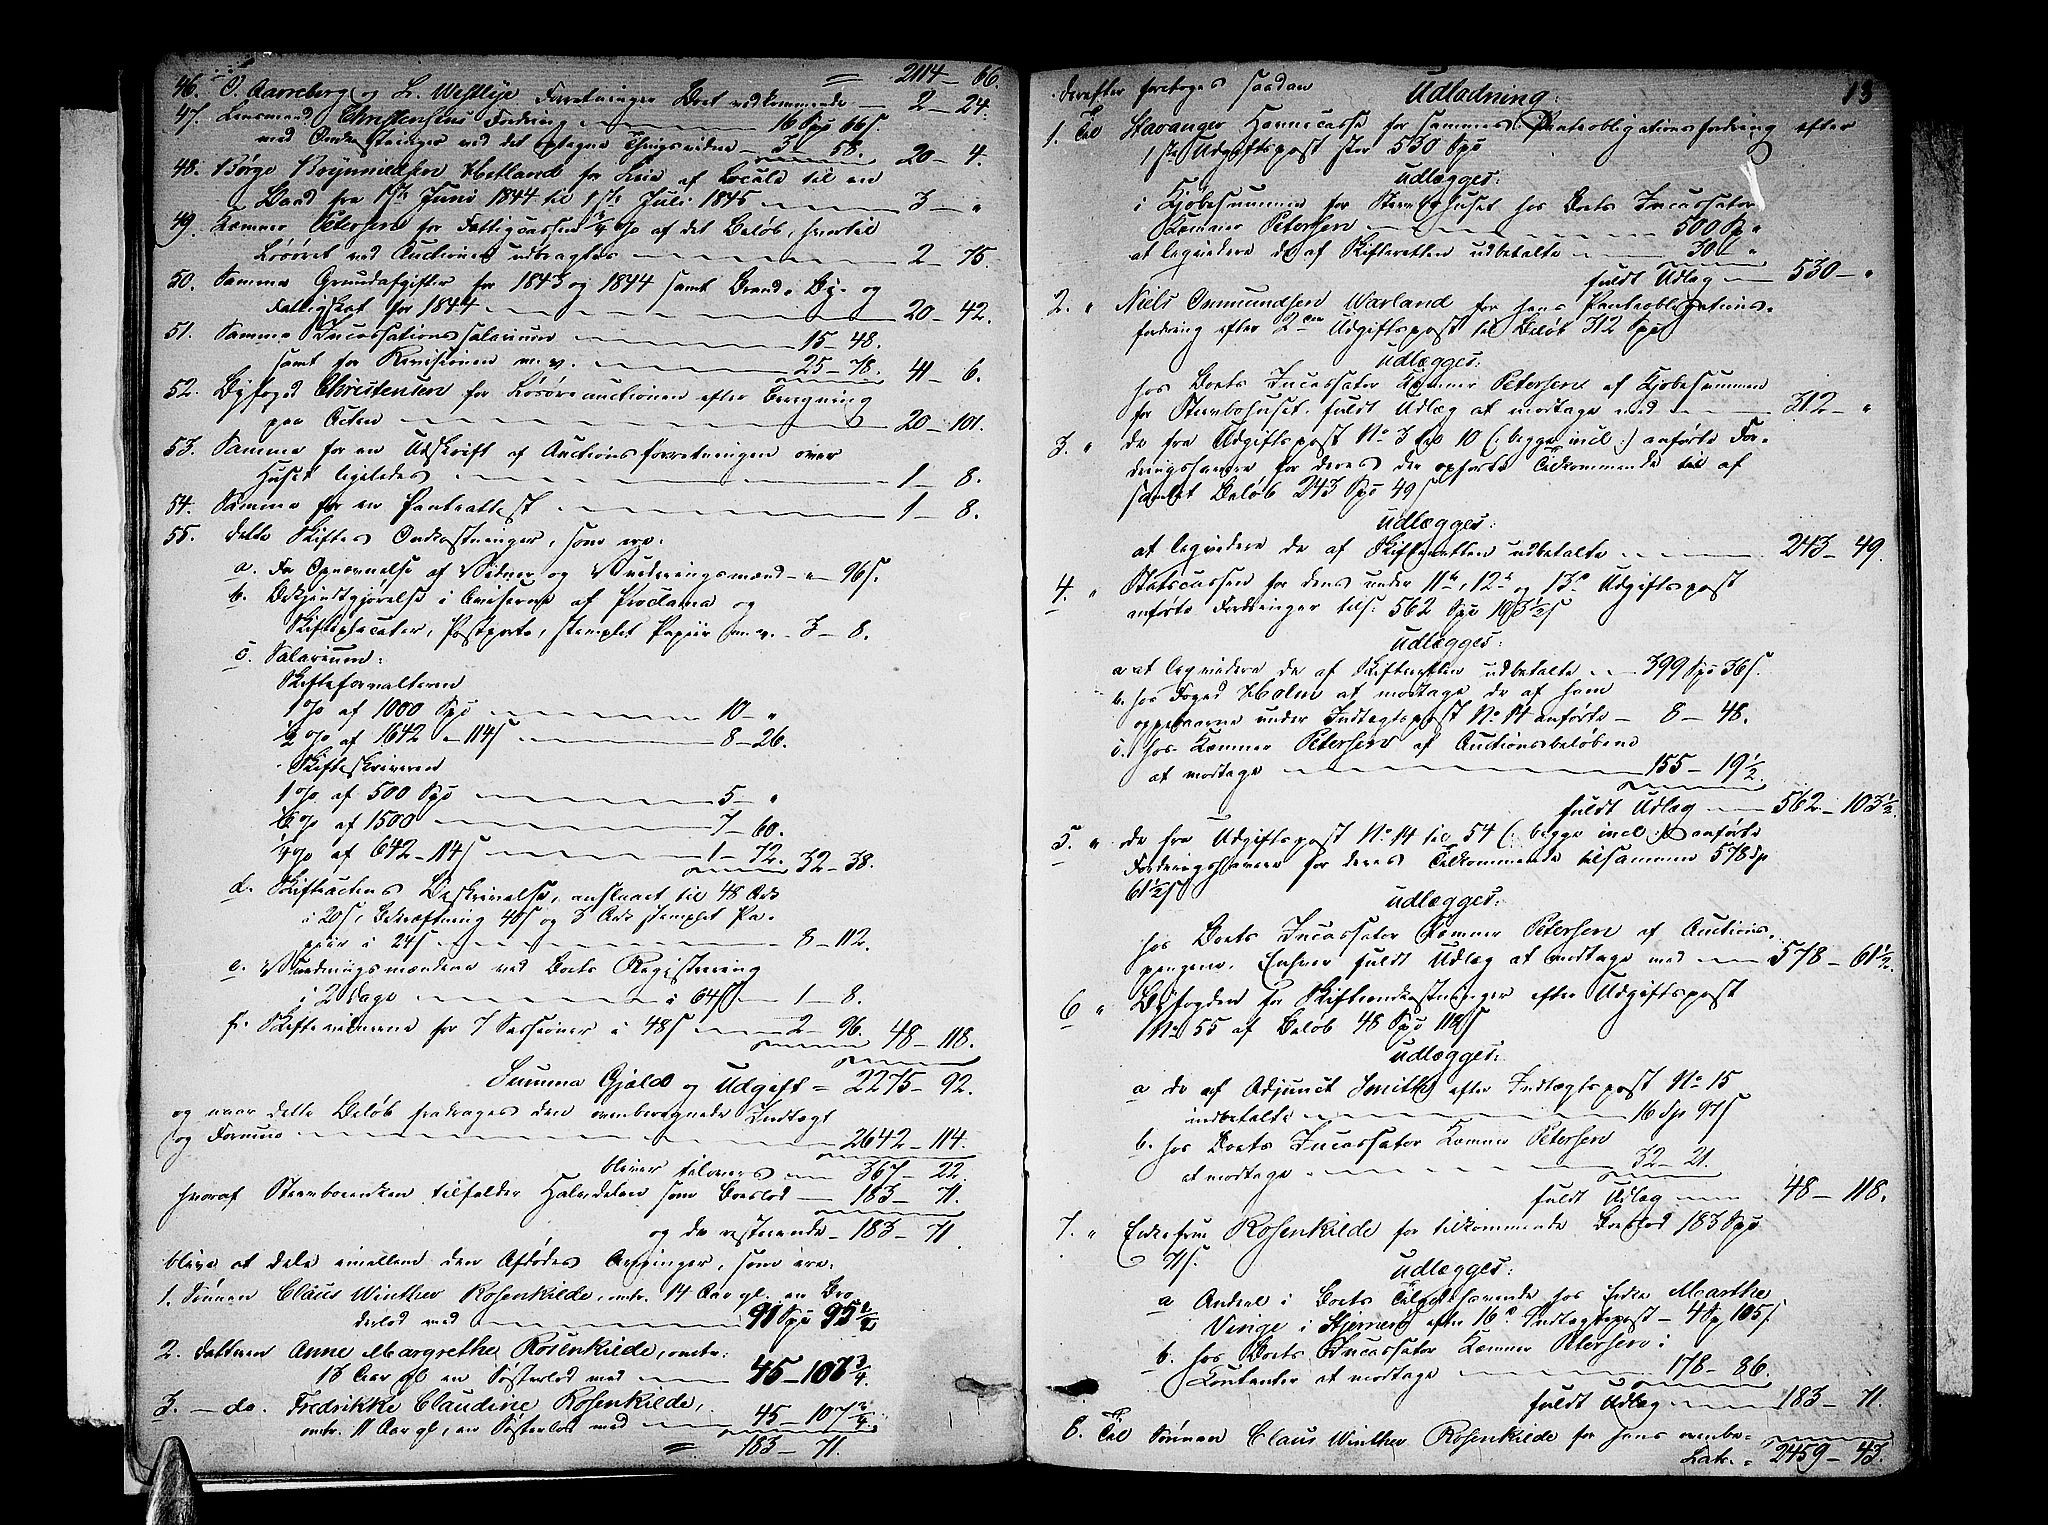 = 2114 - 66.
46. O. Aarreberg og L. Westlye Forretninger Boet vedkommende — 2 - 24.
47. Lensmand Christensens Fordring — 16 Spd 66 s.
med Omkostninger ved det optagne Thingsvidne — 3 - 58. 20 - 4.
48. Børge Hetland for Leie af Locale til en
Baad fra 1ste Juni 1844 til 1ste Juli 1845 — 3 - "
49. Kæmner Petersen for Fattigcassen ¼ % af det Beløb, hvortil
Løsøret ved Auctionen udbragtes — 2 - 75.
50. Samme Grundafgifter for 1843 og 1844 samt Brand- By- og
Fattigskat for 1844 — 20 - 42.
51. Samme Incassationssalarium — 15 - 48.
samt for Revisionen m. v. — 25 - 78. 41 - 6.
52. Byfoged Christensen for Løsøreauctionen efter Beregning
paa Acten — 20 - 101.
53. Samme for en Udskrift af Auctionsforretningen over
Huset ligeledes — 1 - 8.
54. Samme for en Panteattest — 1 - 8.
55. dette Skiftes Omkostninger, som ere:
a. For Opnævnelse af Vidner og Vurderingsmænd - " - 96 s.
b. Bekjendtgjørelse i Aviserne af Proclama og
Skifteplacater, Postporto, stemplet Papiir m. v. - 3 - 8.
c. Salarium:
Skifteforvalteren
1 % af 1000 Spd — 10 - "
½ % af 1642 - 114 s — 8 - 26.
Skifteskriveren
1 % af 500 Spd — 5 - "
½ % af 1500 — 7 - 60.
¼ % af 642 - 114 s — 1 - 72. 32 - 38.
d. Skifteactens Beskrivelse, anslaaet til 48 Ark
i 20 s, Bekræftning 40 s og 3 Ark stemplet Pa-
piir i 24 s — 8 - 112.
e. Vurderingsmændene ved Boets Registrering
i 2 Dage — i 64 s — 1 - 8.
f. Skiftevidnerne for 7 Sessioner i 48 s — 2 - 96. 48 - 118.
Summa Gjæld og Udgift = 2275 - 92.
og naar dette Beløb fradrages den ovenberegnede Indtægt
og Formue — 2642 - 114.
bliver tilovers — 367 - 22.
hvoraf Stervboenken tilfalder Halvdelen som Boeslod — 183 - 71.
og de resterende - 183 - 71.
blive at dele imellem den Afdødes Arvinger, som ere:
1. Sønnen Claus Winther Rosenkilde, omtr. 14 Aar gl. en Bro
derlod med — 91 Spd 95 ½
2. Datteren Anne Margrethe Rosenkilde, omtr.
13 Aar gl. en Søsterlod med — 45 - 107 ¾.
3. - do. Fredrikke Claudine Rosenkilde,
omtr. 11 Aar gl, en Søsterlod med — 45 - 107 ¾.
= 183 - 71.
13
derefter foretoges saadan Udlodning:
1. Til Stavanger Havnecasse for sammes Panteobligationsfordring efter
1ste Udgiftspost stor 530 Spd
udlægges:
i Kjøbesummen for Stervbohuset hos Boets Incassator
Kæmner Petersen — 500 Sp "
at liqvidere de af Skifteretten udbetalte — 30 - "
fuldt Udlæg — 530 - "
2. " Niels Osmundsen Warland for hans Panteobligations-
fordring efter 2den Udgiftspost til Beløb 312 Spd
udlægges:
hos Boets Incassator Kæmner Petersen af Kjøbesummen
for Stervbohuset. fuldt Udlæg at modtage med — 312 - "
3. " de fra Udgiftspost No 3 til 10 (: begge incl :) anførte For-
dringshavere for deres der opførte Tilkommende til af
samlet Beløb 243 Spd 49 s
udlægges:
at liqvidere de af Skifteretten udbetalte — 243 - 49.
4. " Statscassen for dens under 11te, 12te og 13de Udgiftspost
anførte Fordringer tils. 562 Spd 103½ s
udlægges:
a. at liqvidere de af Skifteretten udbetalte — 399 Spd 36 s.
b. hos Foged Holm at modtage de af ham
oppebaarne under Indtægtspost No 14 anførte — 8 - 48.
c. hos Kæmner Petersen af Auctionsbeløbene
at modtage — 155 - 19½.
fuldt Udlæg — 562 - 103½.
5. " de fra Udgiftspost No 14 til 54 (: begge incl :) anførte
Fordringshavere for deres Tilkommende tilsammen 578 Sp
61½ s
udlægges:
hos Boets Incassator Kæmner Petersen af Auctions-
pengene. Enhver fuldt Udlæg at modtage med — 578 - 61½.
6 " Byfogden for Skifteomkostninger efter Udgiftspost
No 55 af Beløb 48 Spd 118 s
udlægges:
a de af Adjunct Smith efter Indtægtspost No 15
indbetalte — 16 Sp 97 s
b. hos Boets Incassator Kæmner Petersen
at modtage — 32 - 21.
fuldt Udlæg — 48 - 118.
7. " Enkefrue Rosenkilde for tilkommende Boeslod 183 Spd
71 s.
udlægges:
a Andeel i Boets Tilgodehavende hos Enke Marthe
Venge i Stjernerø efter 16de Indtægtspost - 4 Sp 105 s.
b. hos Boets Incassator Kæmner Petersen i
Contanter at modtage — 178 - 86.
fuldt Udlæg — 183 - 71.
8. Til Sønnen Claus Winther Rosenkilde for hans ovenbe-
Lats. = 2459 - 43.